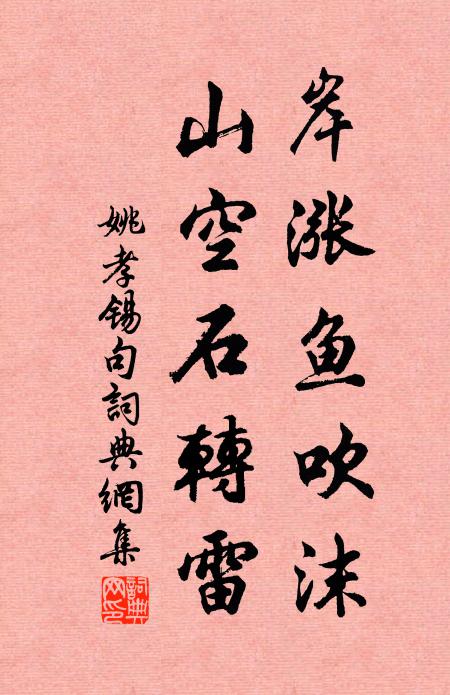 岸漲魚吹沫
山空石轉雷
姚孝錫句詞典網集
詞典網印